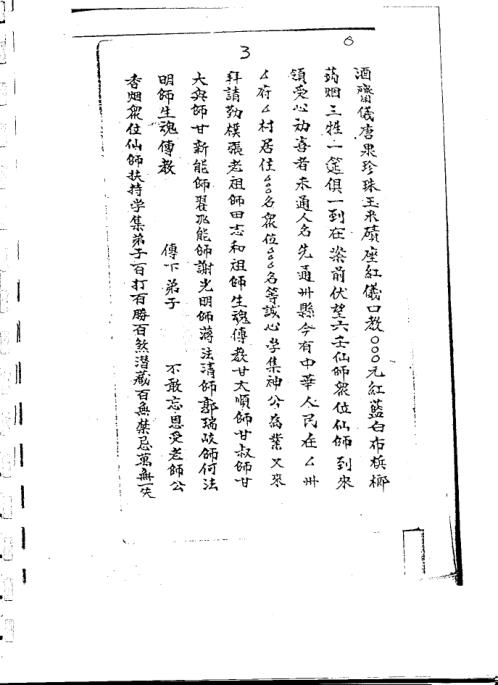 6
3
酒齋儀唐果珍珠玉米磧座紅儀口教〇〇〇元紅藍白布梹榔
蒟烟三牲一筵俱一到在柒前伏望六壬仙師衆位仙師到來
領受心动喜者未通人名先通卅縣今有中華人民在厶卅
厶府厶村居住厶厶名衆位厶厶名等誠心學集神公爲業又來
拜請勒樸張老祖師田志和祖師生魂傳教甘大順師甘叔師甘
大興師甘新能師翟兆能師謝光明師蔣法清師鄭瑞政師何法
明師生魂傳教 傳下弟子 不敢忘恩受老師公
香烟衆位仙師扶持学集弟子百打百勝百煞潛藏百無禁忌萬無一失